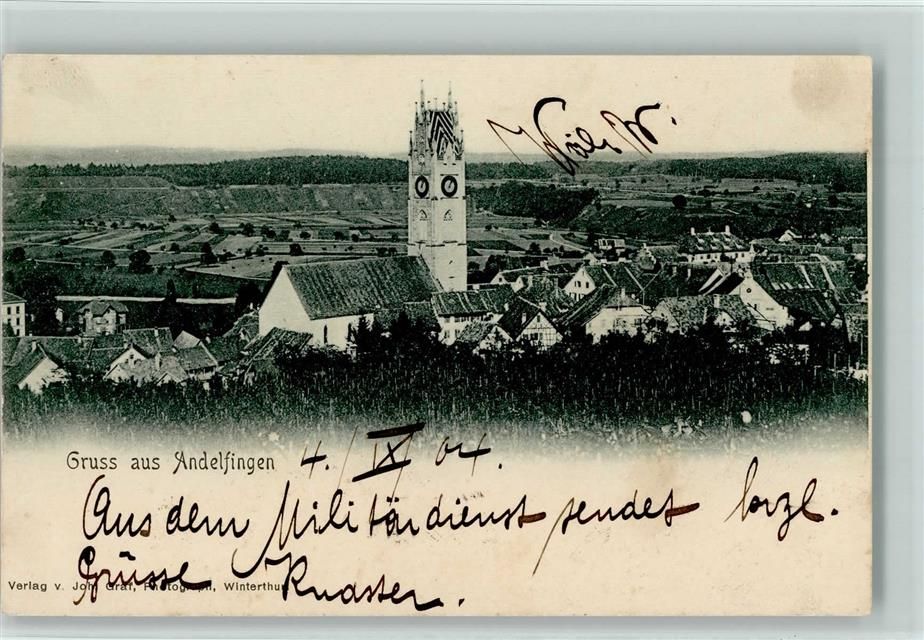 Gruss aus Andelfingen 4. / IX / 04.
Aus dem Militärdienst sendet herzl.
Grüsse Knaster.
Verlag v. Joh. Graf, Photograph, Winterthur